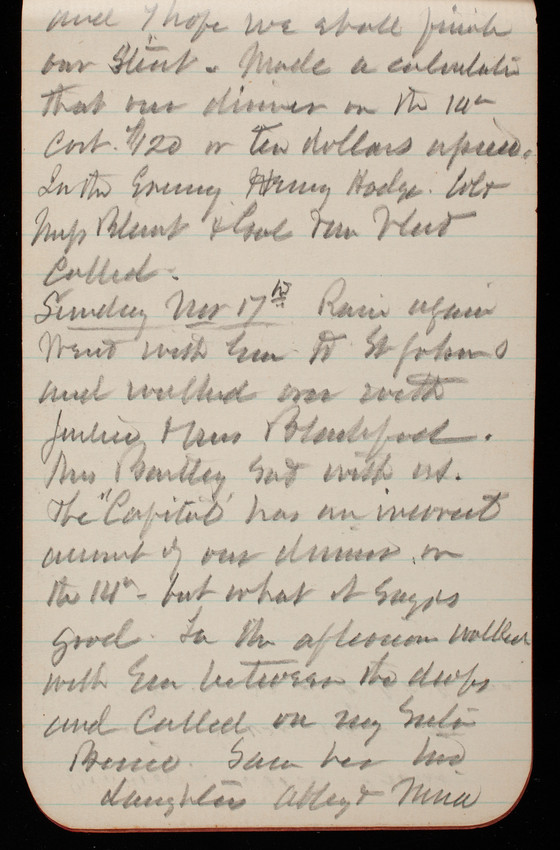 and I hope we shall finish
our "Stint". Made a calculation
that our dinner on the 14th
cost $120 or ten dollars apiece.
In the Evening Henry Hodge. Colo
Miss Blunt & Col Van Vliet
called.
Sunday Nov 17th Rain again
Went with Em to St Johns
and walked over with
Julia & Miss
Mrs Bartley sat with us.
The "Capital" has an incorrect
account of our dinner on
the 14th - but what it says is
good. In the afternoon walked
with Em between the drops
and called on my
Saw her two
daughters Abby & Nina